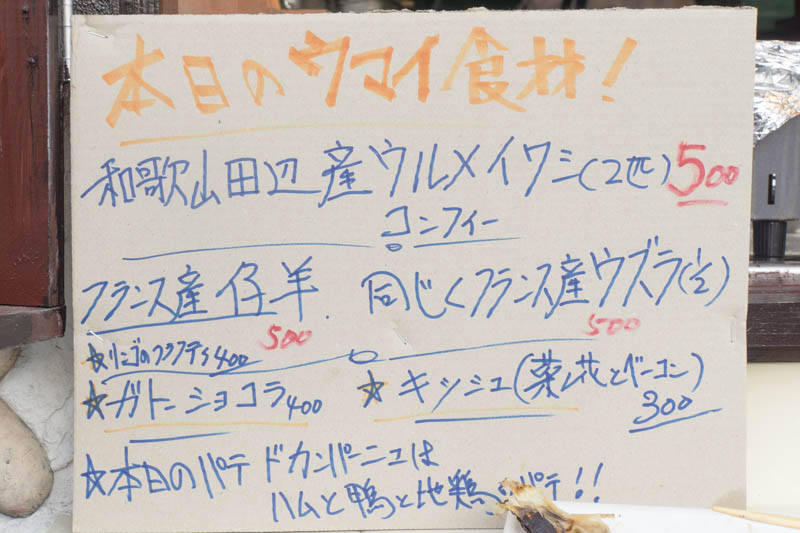 本日のウマイ食材!
和歌山田辺産ウルメイワシ(2匹)500
コンフィー
フランス産仔羊. 同じくフランス産ウズラ(1/2)
500 500
★リンゴの 400
★ガトーショコラ400 ★キッシュ(菜ノ花とベーコン)
300
★本日のパテ ドカンパーニュは
ハムと鴨と地鶏 パテ!!